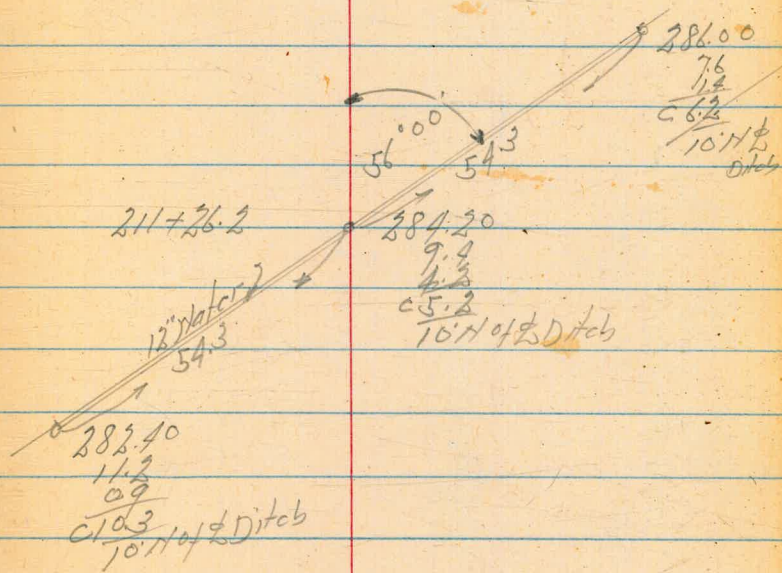 286.00
7.6
1.4
C 6.2
10' N ⅊
Ditch
56°00'
54.3
211+26.2
284.20
9.4
4.2
C 5.2
10' N of ⅊ Ditch
12" Water
54.3
282.40
11.2
0.9
C 10.3
10' N of ⅊ Ditch